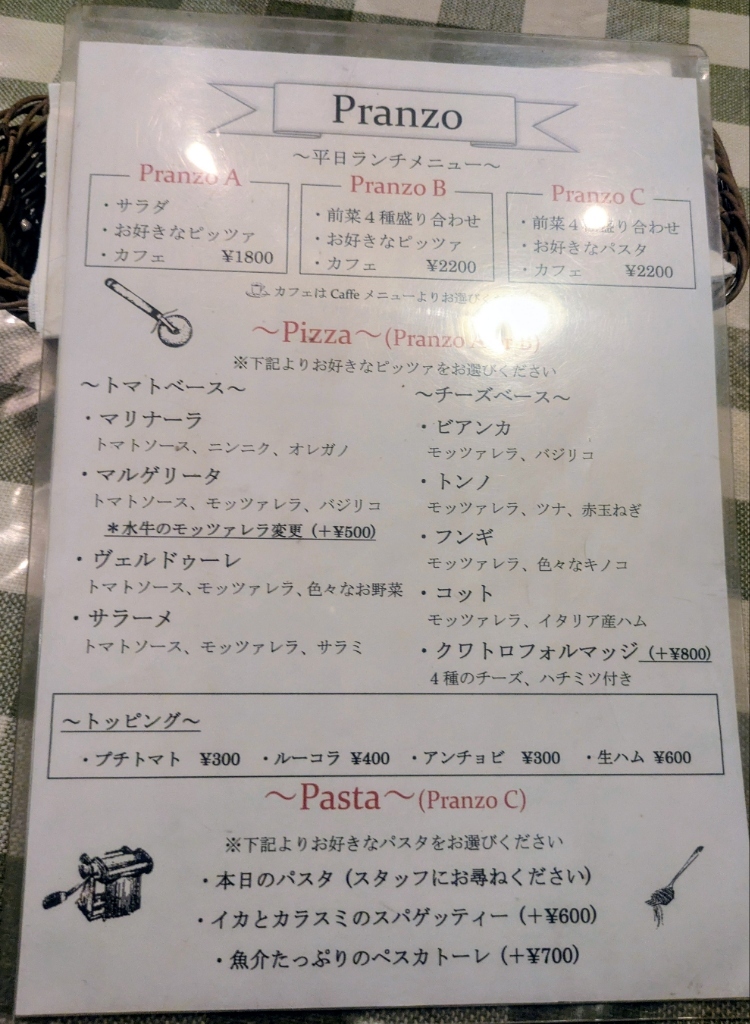 Pranzo
～平日ランチメニュー～
Pranzo A
・サラダ
・お好きなピッツァ
・カフェ ¥1800
Pranzo B
・前菜４種盛り合わせ
・お好きなピッツァ
・カフェ ¥2200
Pranzo C
・前菜４種盛り合わせ
・お好きなパスタ
・カフェ ¥2200
カフェは Caffe メニューよりお選び
～Pizza～(Pranzo A B)
※下記よりお好きなピッツァをお選びください
～トマトベース～
・マリナーラ
トマトソース、ニンニク、オレガノ
・マルゲリータ
トマトソース、モッツァレラ、バジリコ
＊水牛のモッツァレラ変更（＋¥500）
・ヴェルドゥーレ
トマトソース、モッツァレラ、色々なお野菜
・サラーメ
トマトソース、モッツァレラ、サラミ
～チーズベース～
・ビアンカ
モッツァレラ、バジリコ
・トンノ
モッツァレラ、ツナ、赤玉ねぎ
・フンギ
モッツァレラ、色々なキノコ
・コット
モッツァレラ、イタリア産ハム
・クワトロフォルマッジ（＋¥800）
４種のチーズ、ハチミツ付き
～トッピング～
・プチトマト ¥300 ・ルーコラ ¥400 ・アンチョビ ¥300 ・生ハム ¥600
～Pasta～(Pranzo C)
※下記よりお好きなパスタをお選びください
・本日のパスタ（スタッフにお尋ねください）
・イカとカラスミのスパゲッティー（＋¥600）
・魚介たっぷりのペスカトーレ（＋¥700）